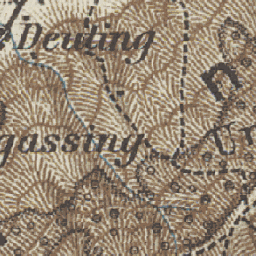 Deuting
gassing
n